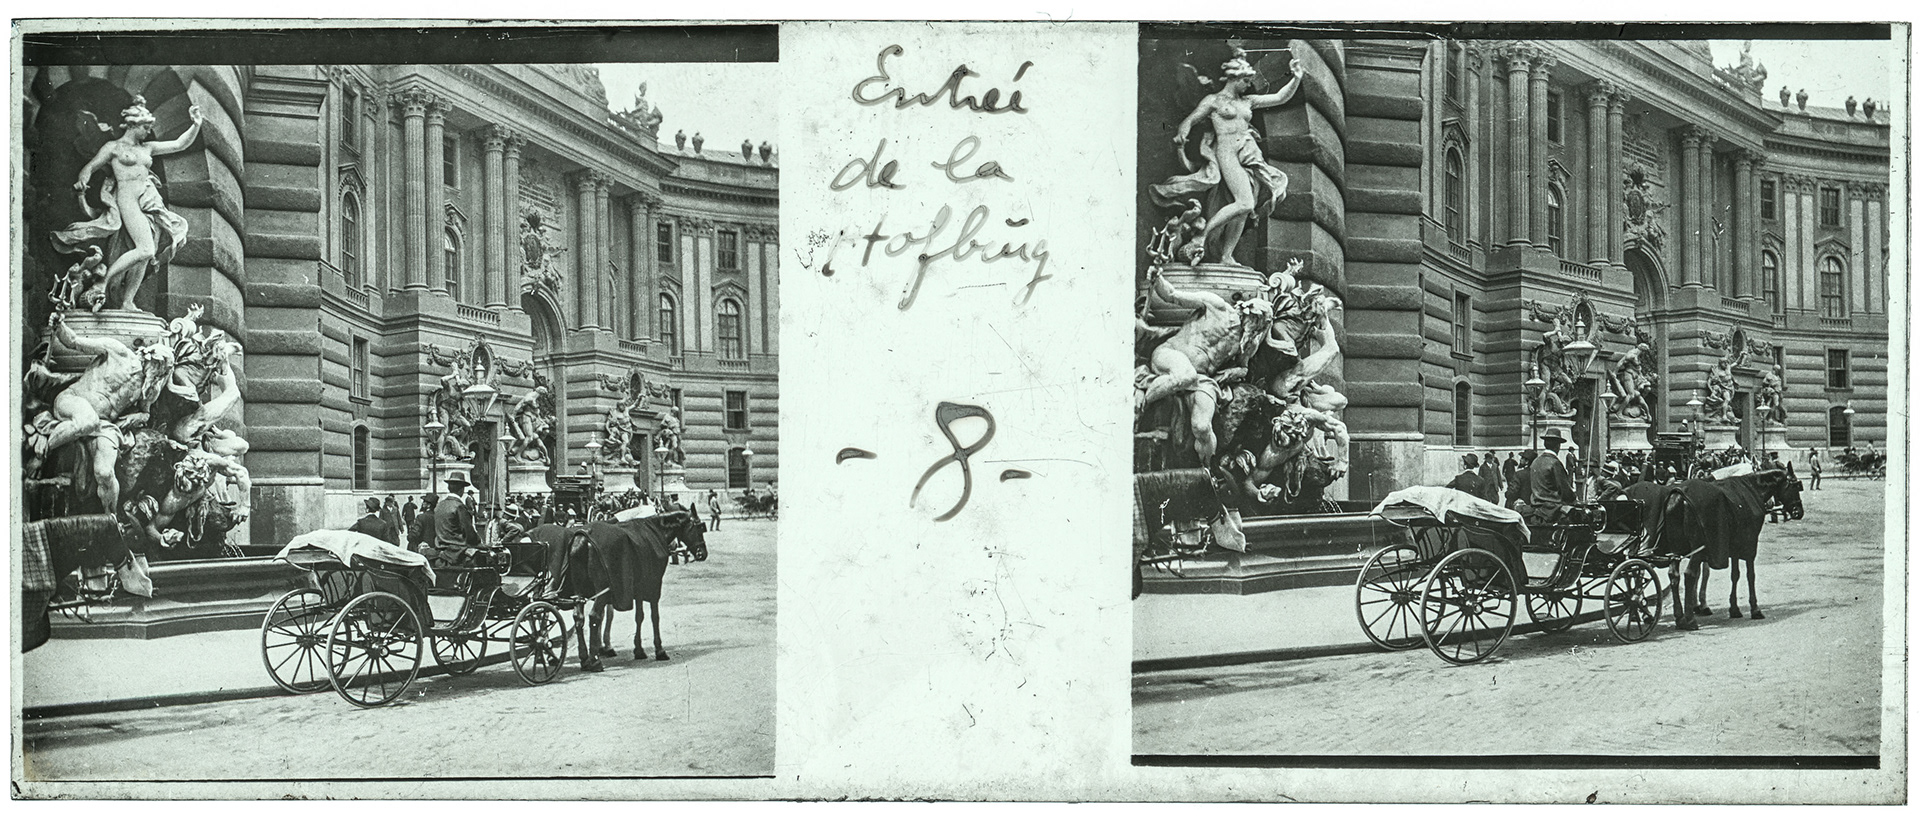 Entreé
de la
Hofbŭrg
- 8 -